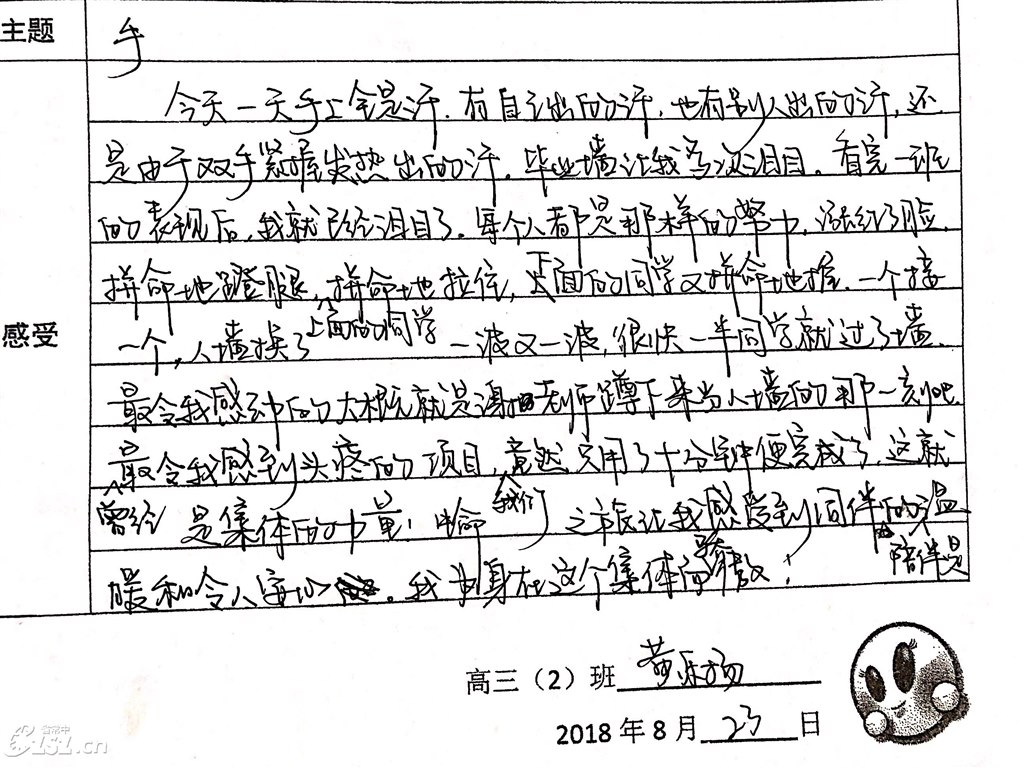 主题
手
今天一天手上全是汗.有自己出的汗,也有别人出的汗,还
是由于双手紧握发热出的汗。毕业墙让我多次泪目。看完一班
的表现后,我就已经泪目了。每个人都是那样的努力,涨红了脸,
拼命地蹬腿,拼命地拉住,下面的同学又拼命地推.一个接
上面的同学
一个,人墙换了一波又一波,很快一半同学就过了墙.
感受
最令我感动的大概就是谢老师蹲下来当人墙的那一刻吧
最令我感到头疼的项目,竟然只用了十分钟便完成了,这就
曾经
我们
是集体的力量!生命之旅让我感受到同伴的温
陪伴是
暖和令人安心。我为身在这个集体而骄傲!
高三(2)班
2018年8月23日
e21.cn